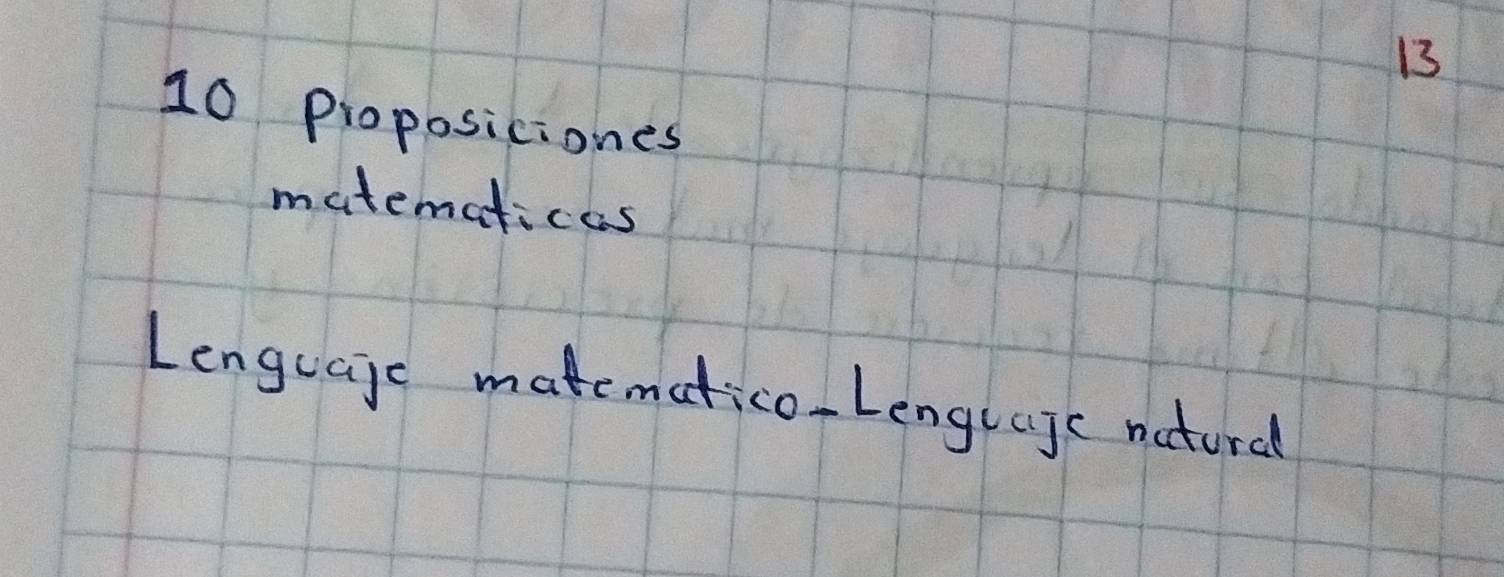 13
10 Proposiciones
matematicas
Lenguaje matematico-Lenguaje natural